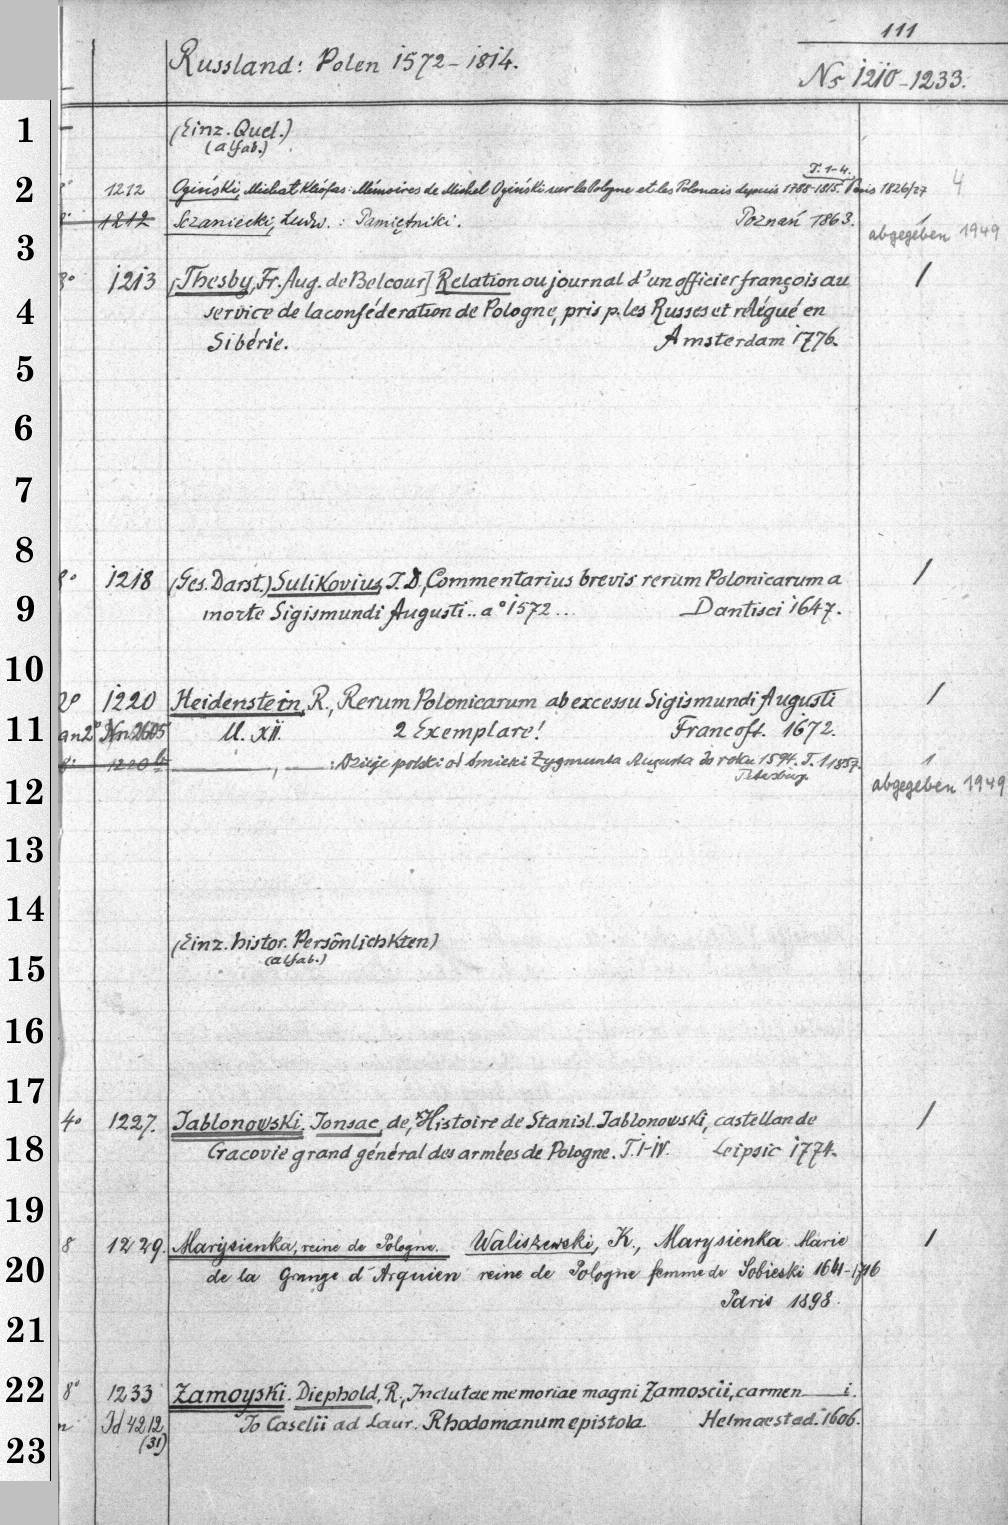 111
Russland: Polen 1572-1814.
No 1210-1233.
1
(Einz. Quel.)
(alfab.)
T. 1-4.
2
8° 1212 Ogiński, Michał Kleofas: Mémoires de Michel Ogiński sur la Pologne et les Polonais depuis 1788-1815. Paris 1826/27 4
1212 Sczaniecki, Ludw. : Pamiętniki. Poznań 1863. 1
abgegeben 1949
3
8° 1213 [Thesby, Fr. Aug. de Belcour] Relation ou journal d'un officier françois au 1
4
service de la conféderation de Pologne, pris p. les Russes et relégué en
Sibérie. Amsterdam 1776.
5
6
7
8
8° 1218 (Ges. Darst.) Sulikovius, J. D, Commentarius brevis rerum Polonicarum a 1
9
morte Sigismundi Augusti .. a° 1572 ... Dantisci 1647.
10
2° 1220 Heidenstein, R., Rerum Polonicarum ab excessu Sigismundi Augusti 1
11
an 2° Nn 2605 ll. XII. 2 Exemplare! Francoft. 1672.
8° 1220 b ———, ——— : Dzieje polski od śmierci Zygmunta Augusta do roku 1594. T. 1 1857. 1
Petersburg.
12
abgegeben 1949
13
14
(Einz. histor. Persönlichkten)
(alfab.)
15
16
17
4° 1227. Jablonowski. Jonsac, de, Histoire de Stanisl. Jablonowski, castellan de 1
18
Cracovie grand général des armées de Pologne. T. I-IV. Leipsic 1774.
19
8 1229. Marysienka, reine de Pologne. Waliszewski, K., Marysienka Marie 1
20
de la Grange d'Arquien reine de Pologne femme de Sobieski 1641-1716
Paris 1898.
21
22
8° 1233 Zamoyski. Diephold, R., Inclutae memoriae magni Zamoscii, carmen —— i.
Id 4212 Jo Caselii ad Laur. Rhodomanum epistola. Helmaestad. 1606.
(31)
23